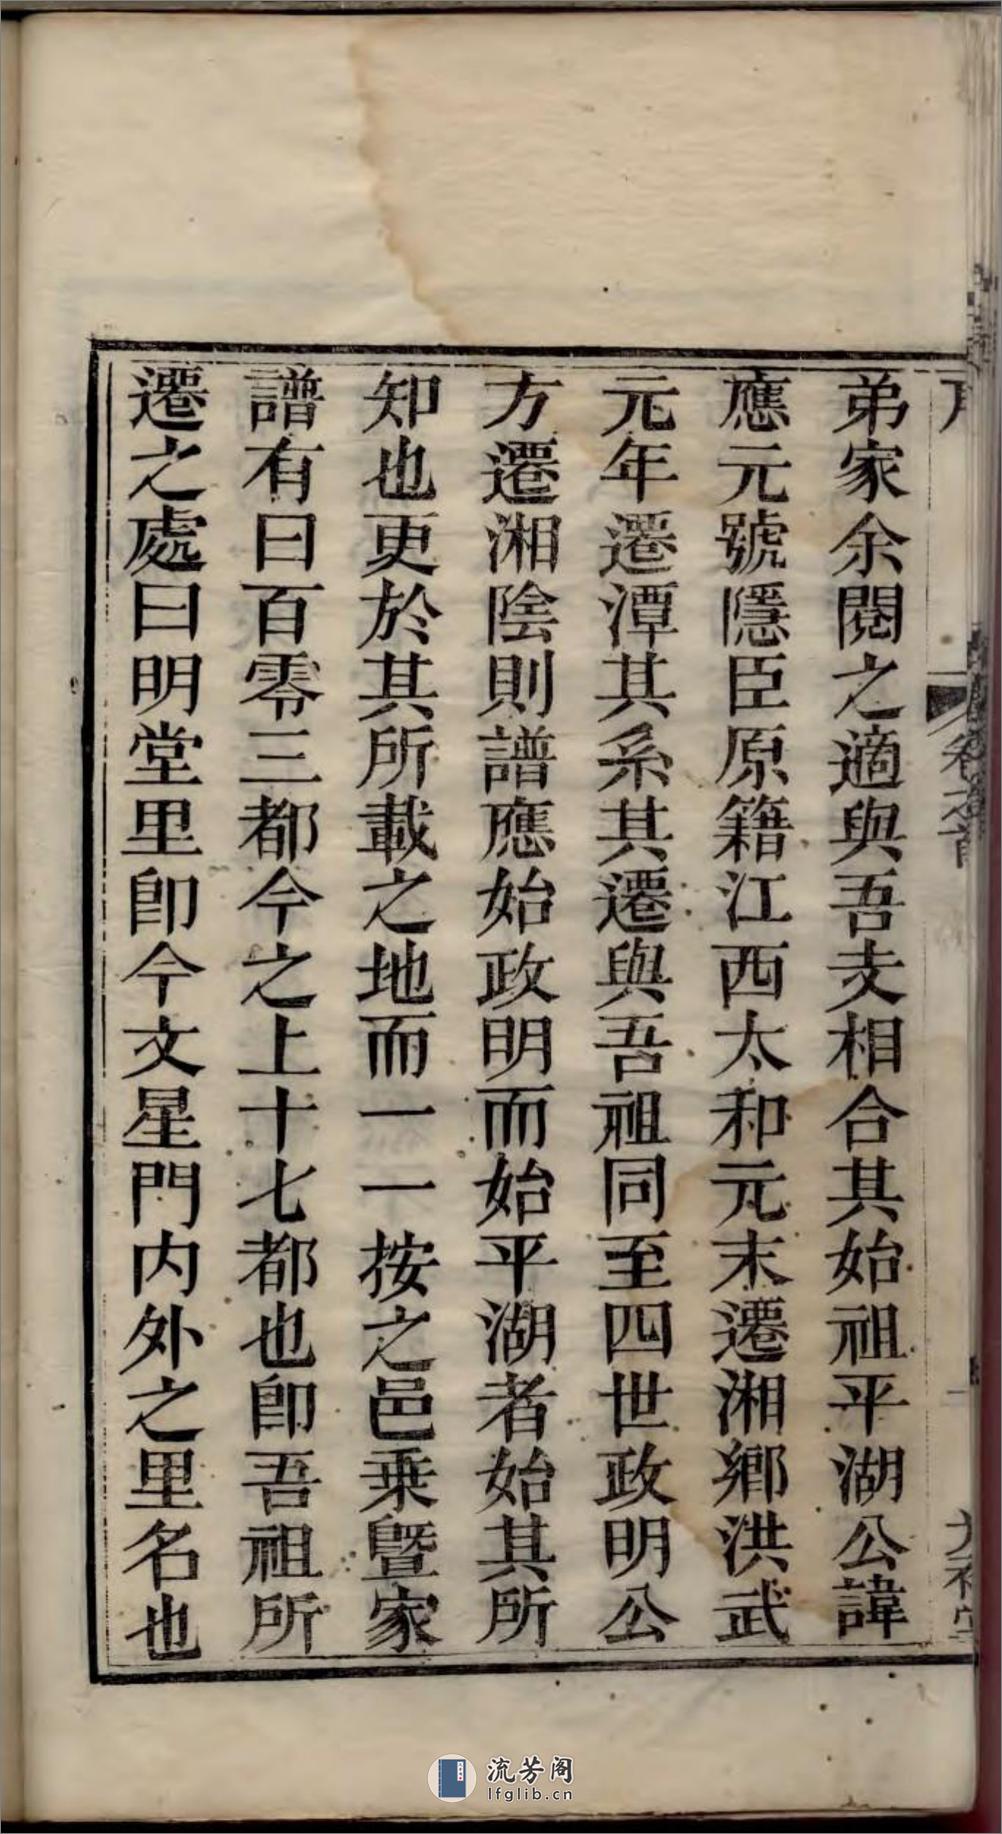 卷之首
弟家余閱之適與吾支相合其始祖平湖公諱
應元號隱臣原籍江西太和元末遷湘鄉洪武
元年遷潭其系其遷與吾祖同至四世政明公
方遷湘陰則譜應始政明而始平湖者始其所
知也更於其所載之地而一一按之邑乗暨家
譜有曰百零三都今之上十七都也卽吾祖所
遷之處曰明堂里卽今文星門内外之里名也
流芳阁
lfglib.cn